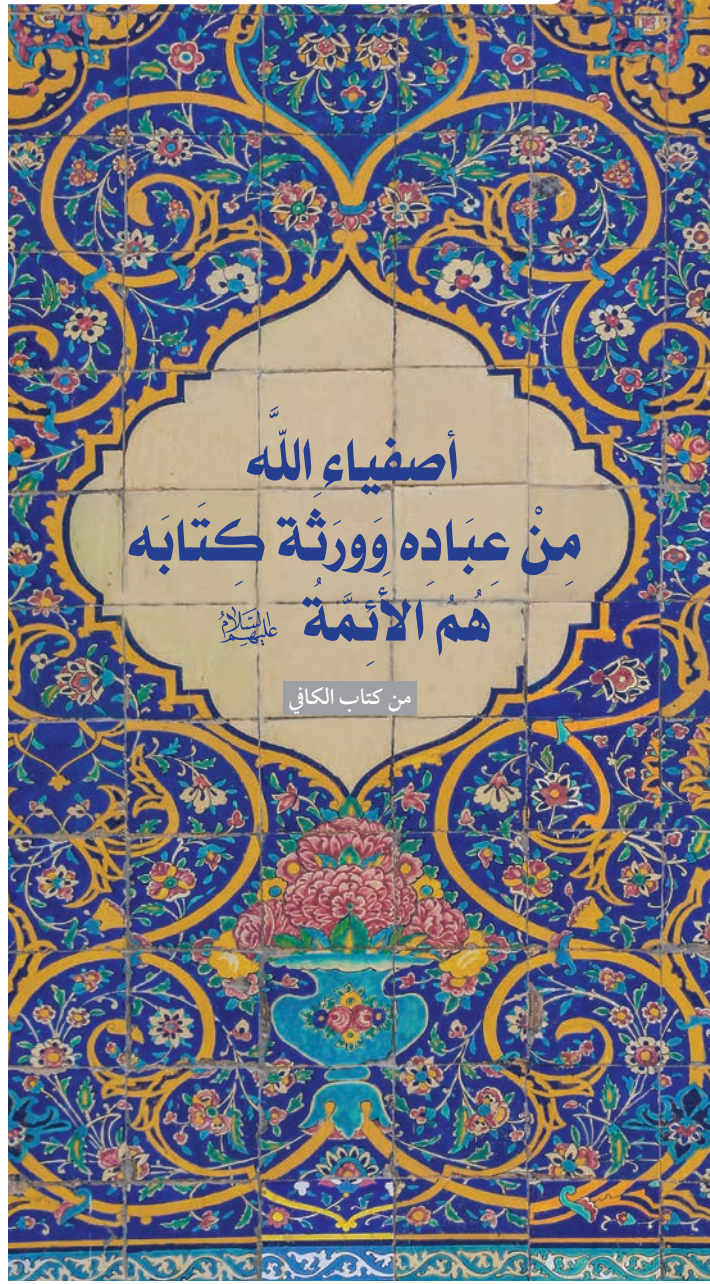 أصفياءِ اللَّه
مِنْ عِبَادِه وَوِرَثة كِتَابَه
هُمُ الأئِمَّةُ عليهم السلام
من كتاب الكافي